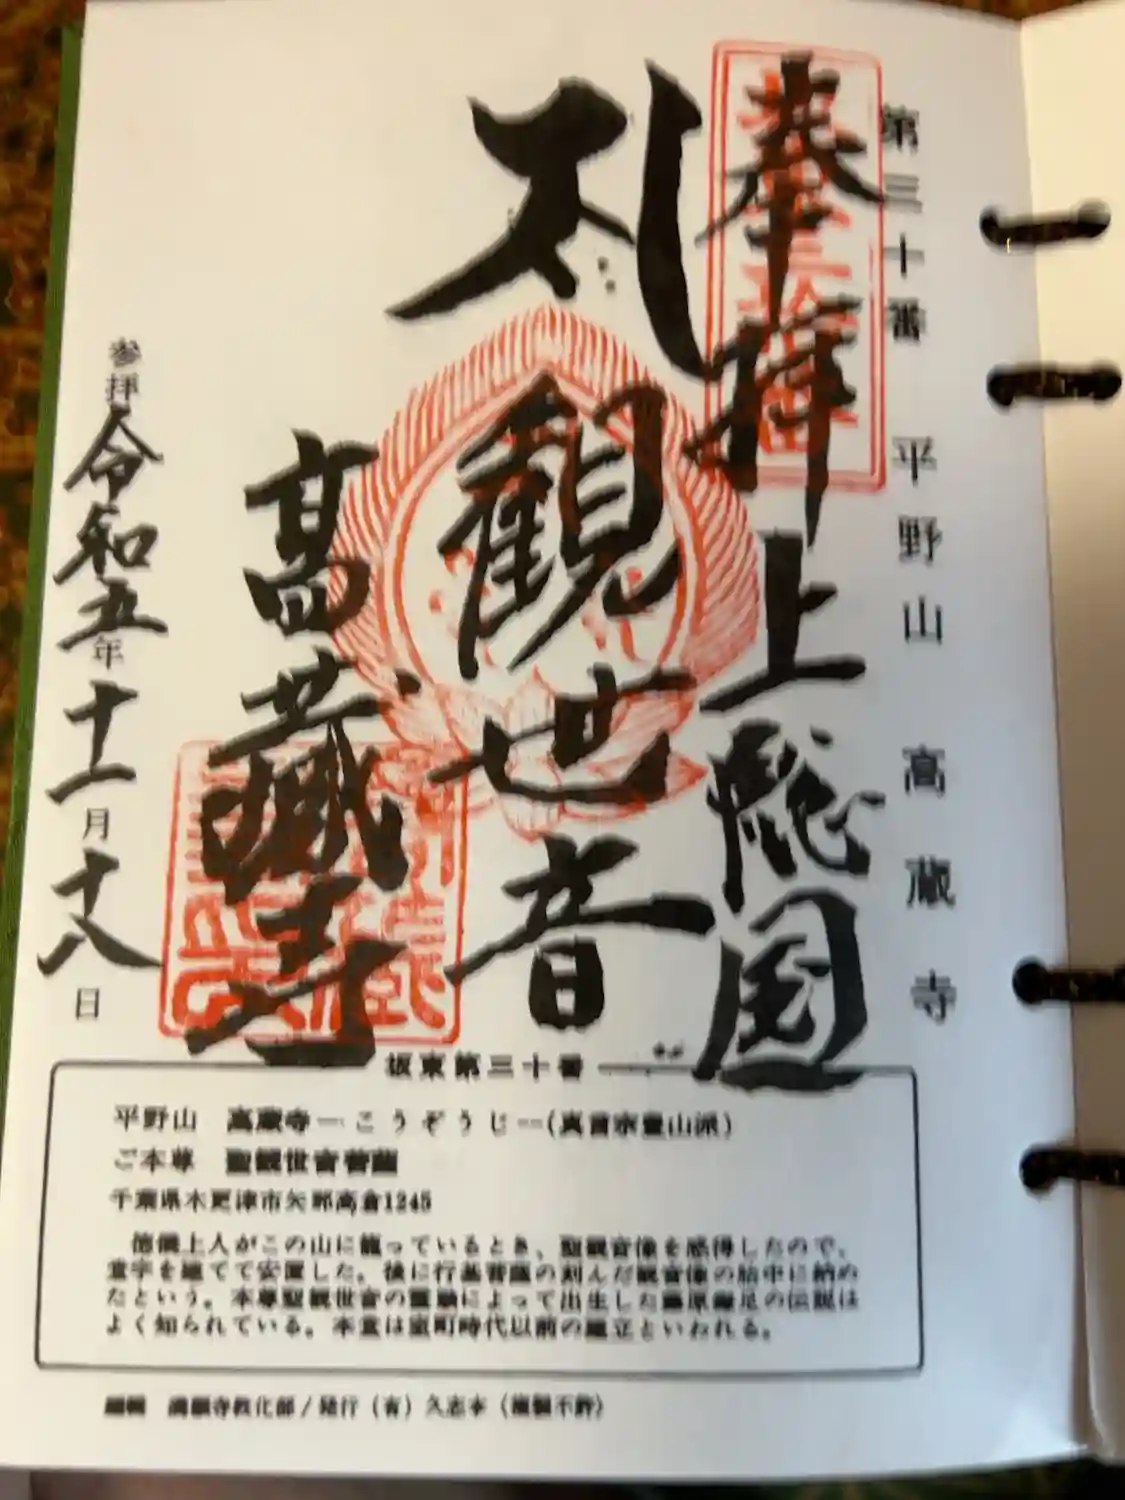 第三十番 平野山 高蔵寺
奉拝 上總国
観世音
高蔵寺
参拝 令和五年十一月十八日
坂東第三十番
平野山 高蔵寺―こうぞうじ―(真言宗豊山派)
ご本尊 聖観世音菩薩
千葉県木更津市矢那高倉1245
徳儀上人がこの山に籠っているとき、聖観音像を感得したので、
堂宇を建てて安置した。後に行基菩薩の刻んだ観音像の胎中に納め
たという。本尊聖観世音の霊験によって出生した藤原鎌足の伝説は
よく知られている。本堂は室町時代以前の建立といわれる。
編輯 満願寺教化部/発行(有)久志本(複製不許)